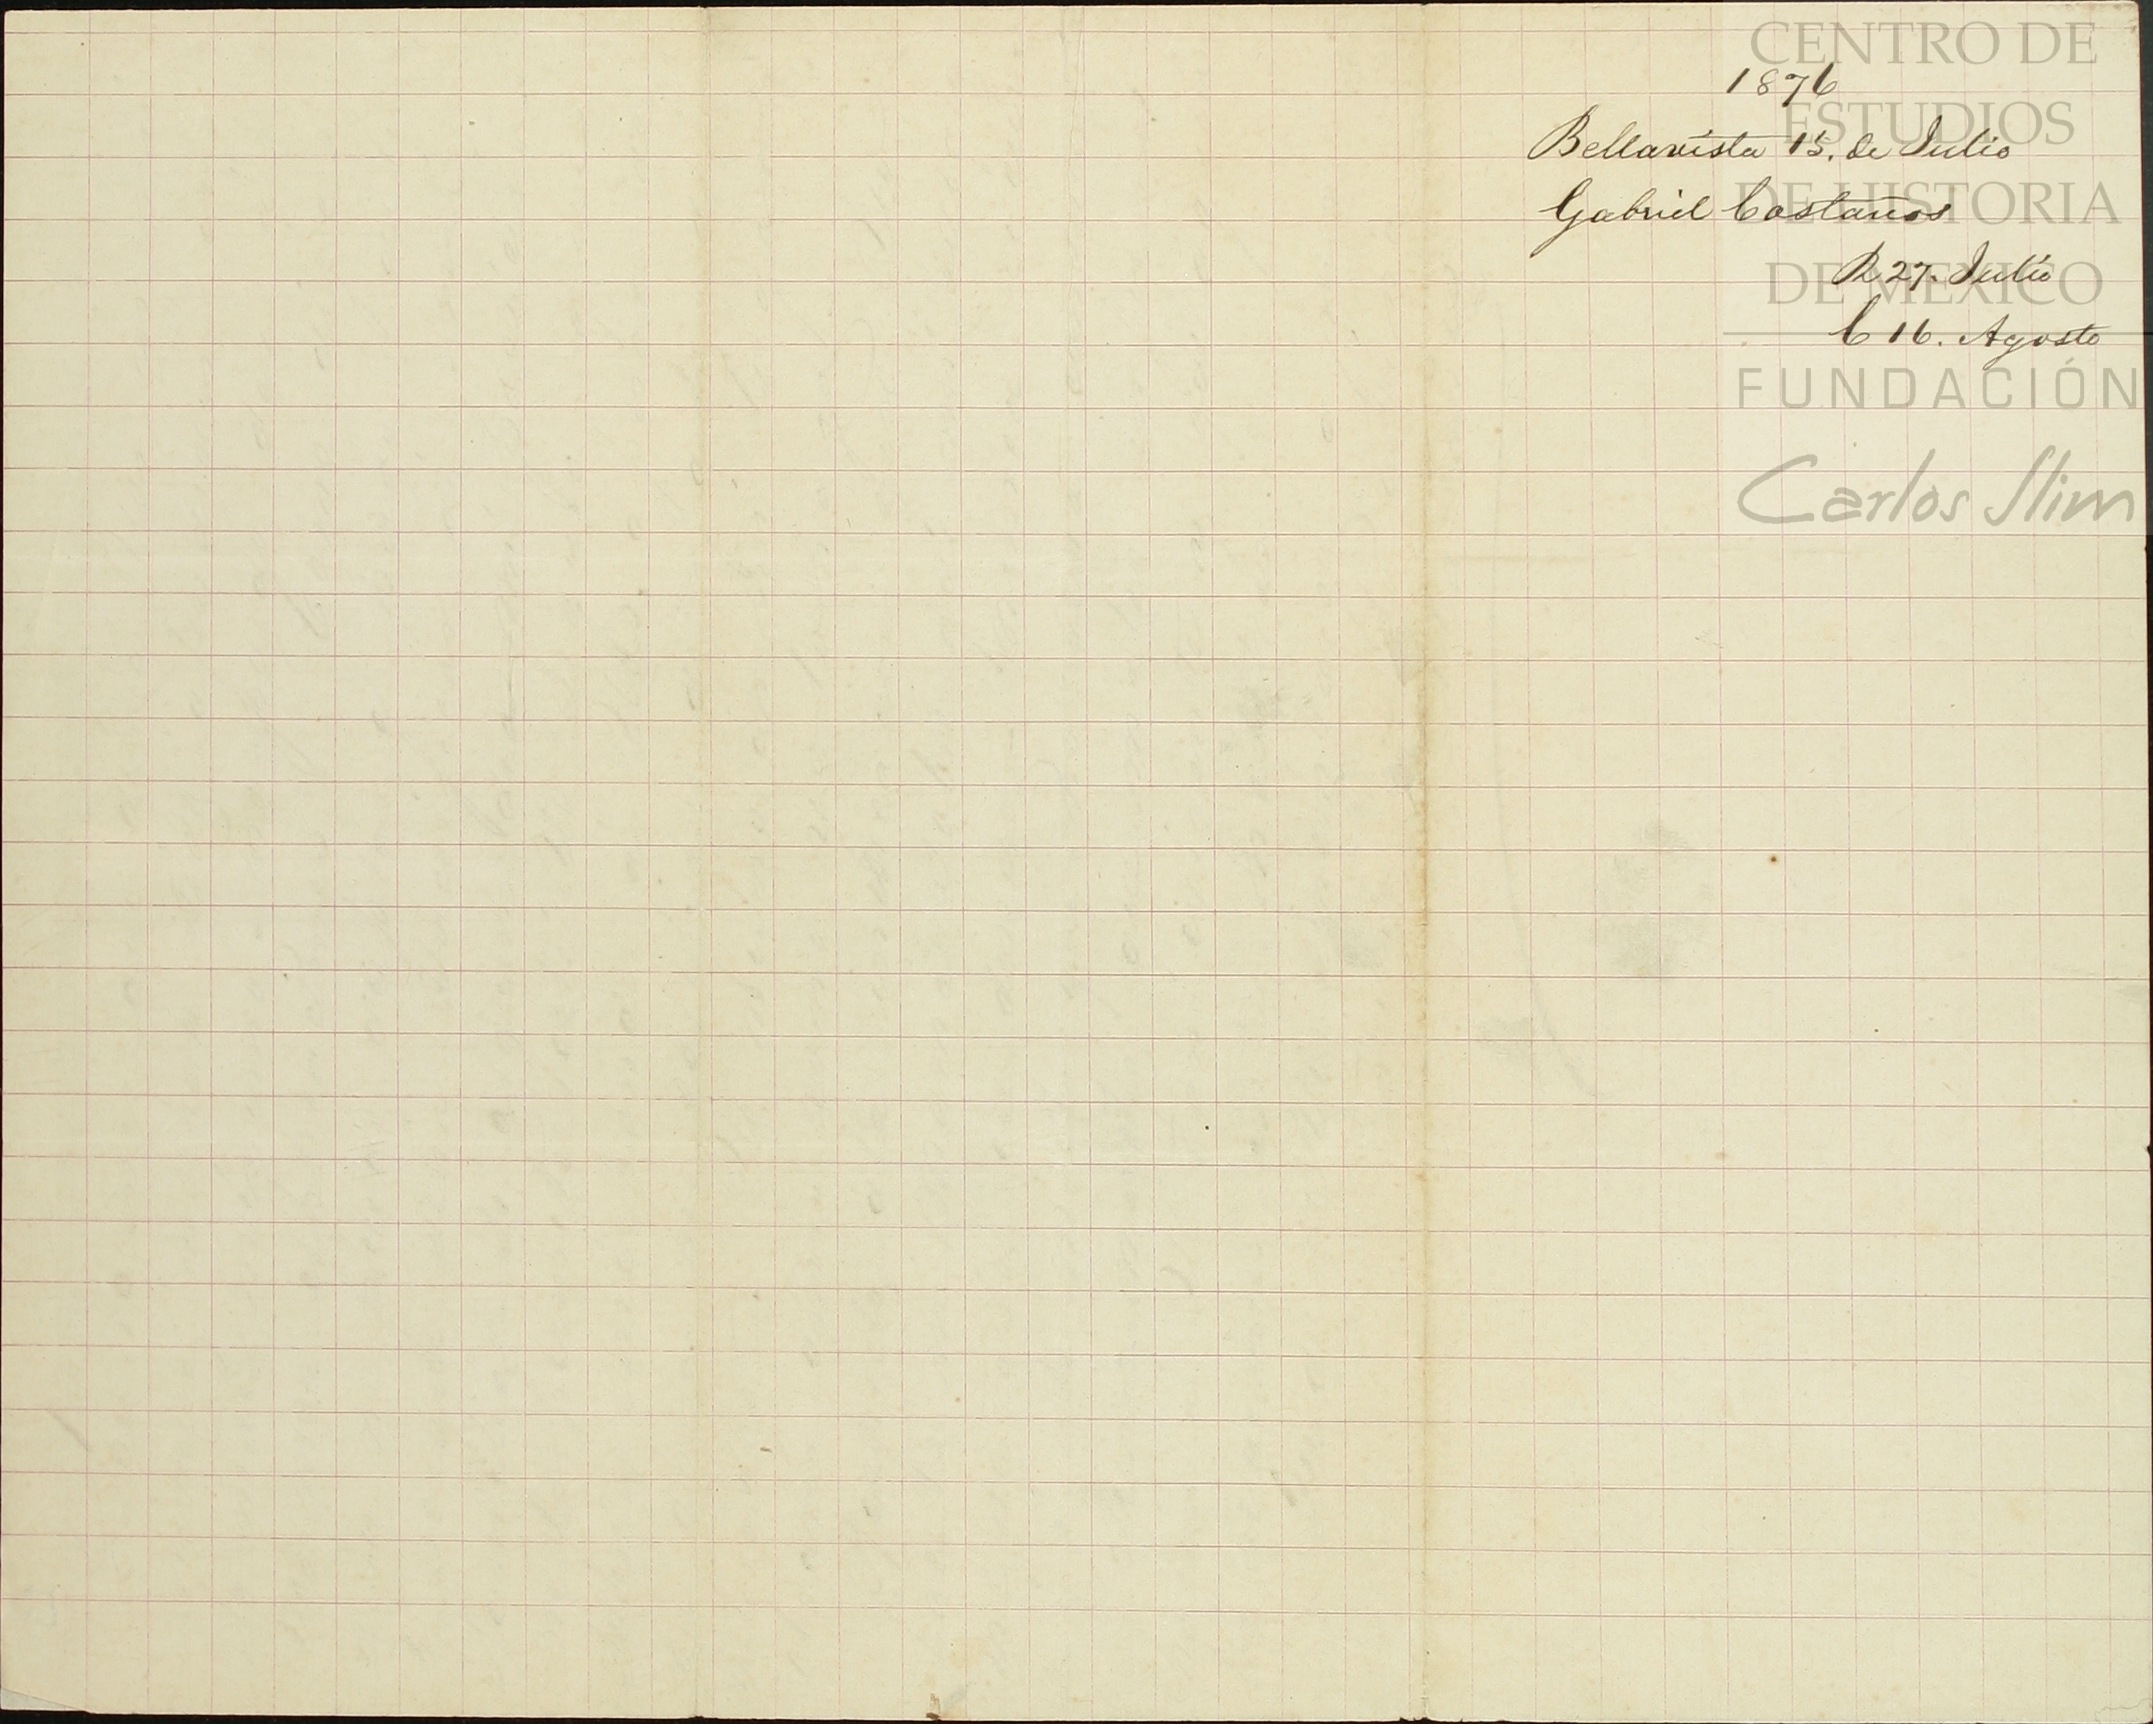 CENTRO DE
ESTUDIOS
DE HISTORIA
DE MEXICO
FUNDACIÓN
Carlos Slim
1876
Bellavista 15. de Julio
Gabriel Castaños
R 27. Julio
C 16. Agosto